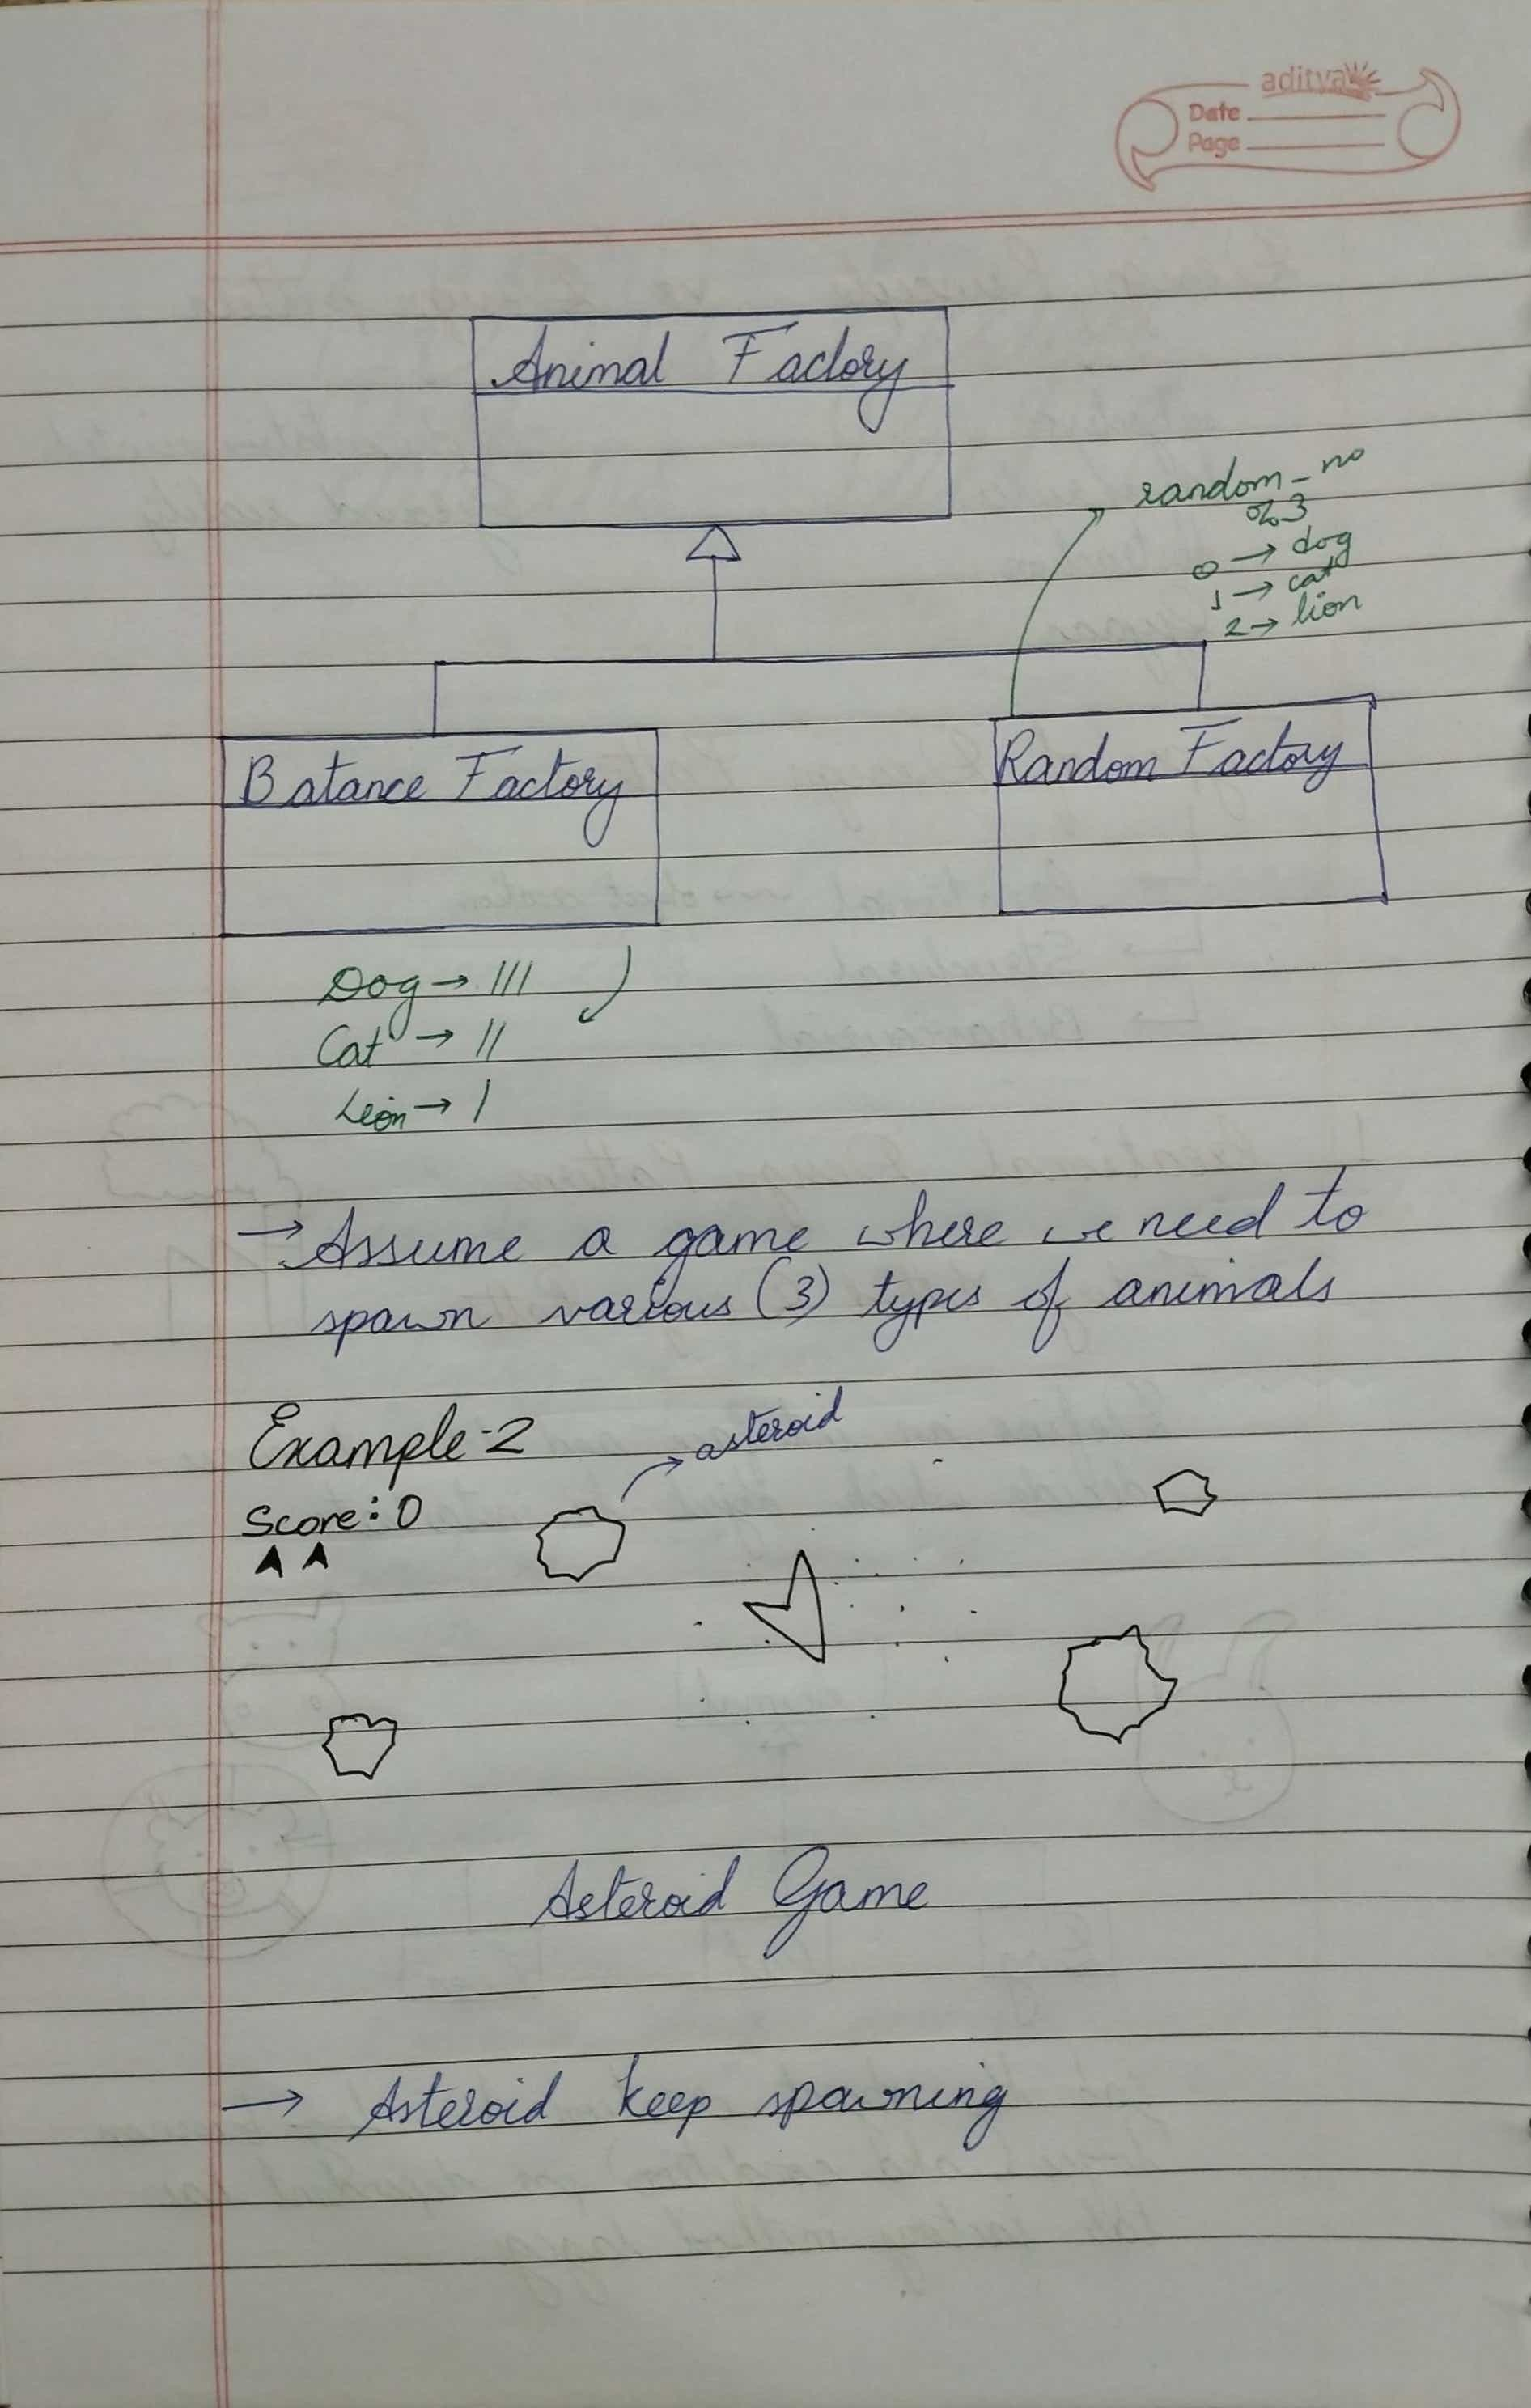 aditya
Date
Page
Animal Factory
random_no
%3
0 → dog
1 → cat
2 → lion
Batance Factory
Random Factory
Dog → |||
Cat → ||
Leion → |
→ Assume a game where we need to
spawn various (3) types of animals
Example-2
asteroid
Score: 0
Asteroid Game
→ Asteroid keep spawning